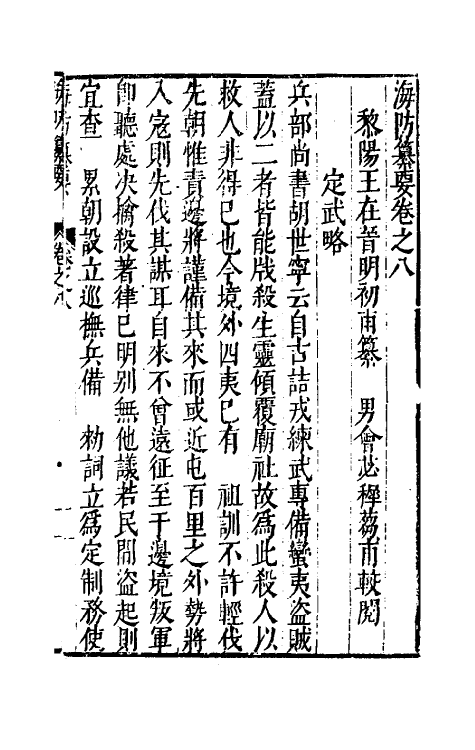 海防纂要卷之八
黎陽王在晉明初甫纂　男會苾穉芻甫較閱
定武略
兵部尚書胡世寧云自古詰戎練武專備蠻夷盜賊
蓋以二者皆能戕殺生靈傾覆廟社故為此殺人以
救人非得巳也今境外四夷巳有　祖訓不許輕伐
先朝惟責邊將謹備其來而或近屯百里之外勢將
入寇則先伐其謀耳自來不曾遠征至于邊境叛軍
卽聽處决擒殺著律巳明别無他議若民間盜起則
宜查　累朝設立巡撫兵備　勑詞立為定制務使
海防纂要　卷之八